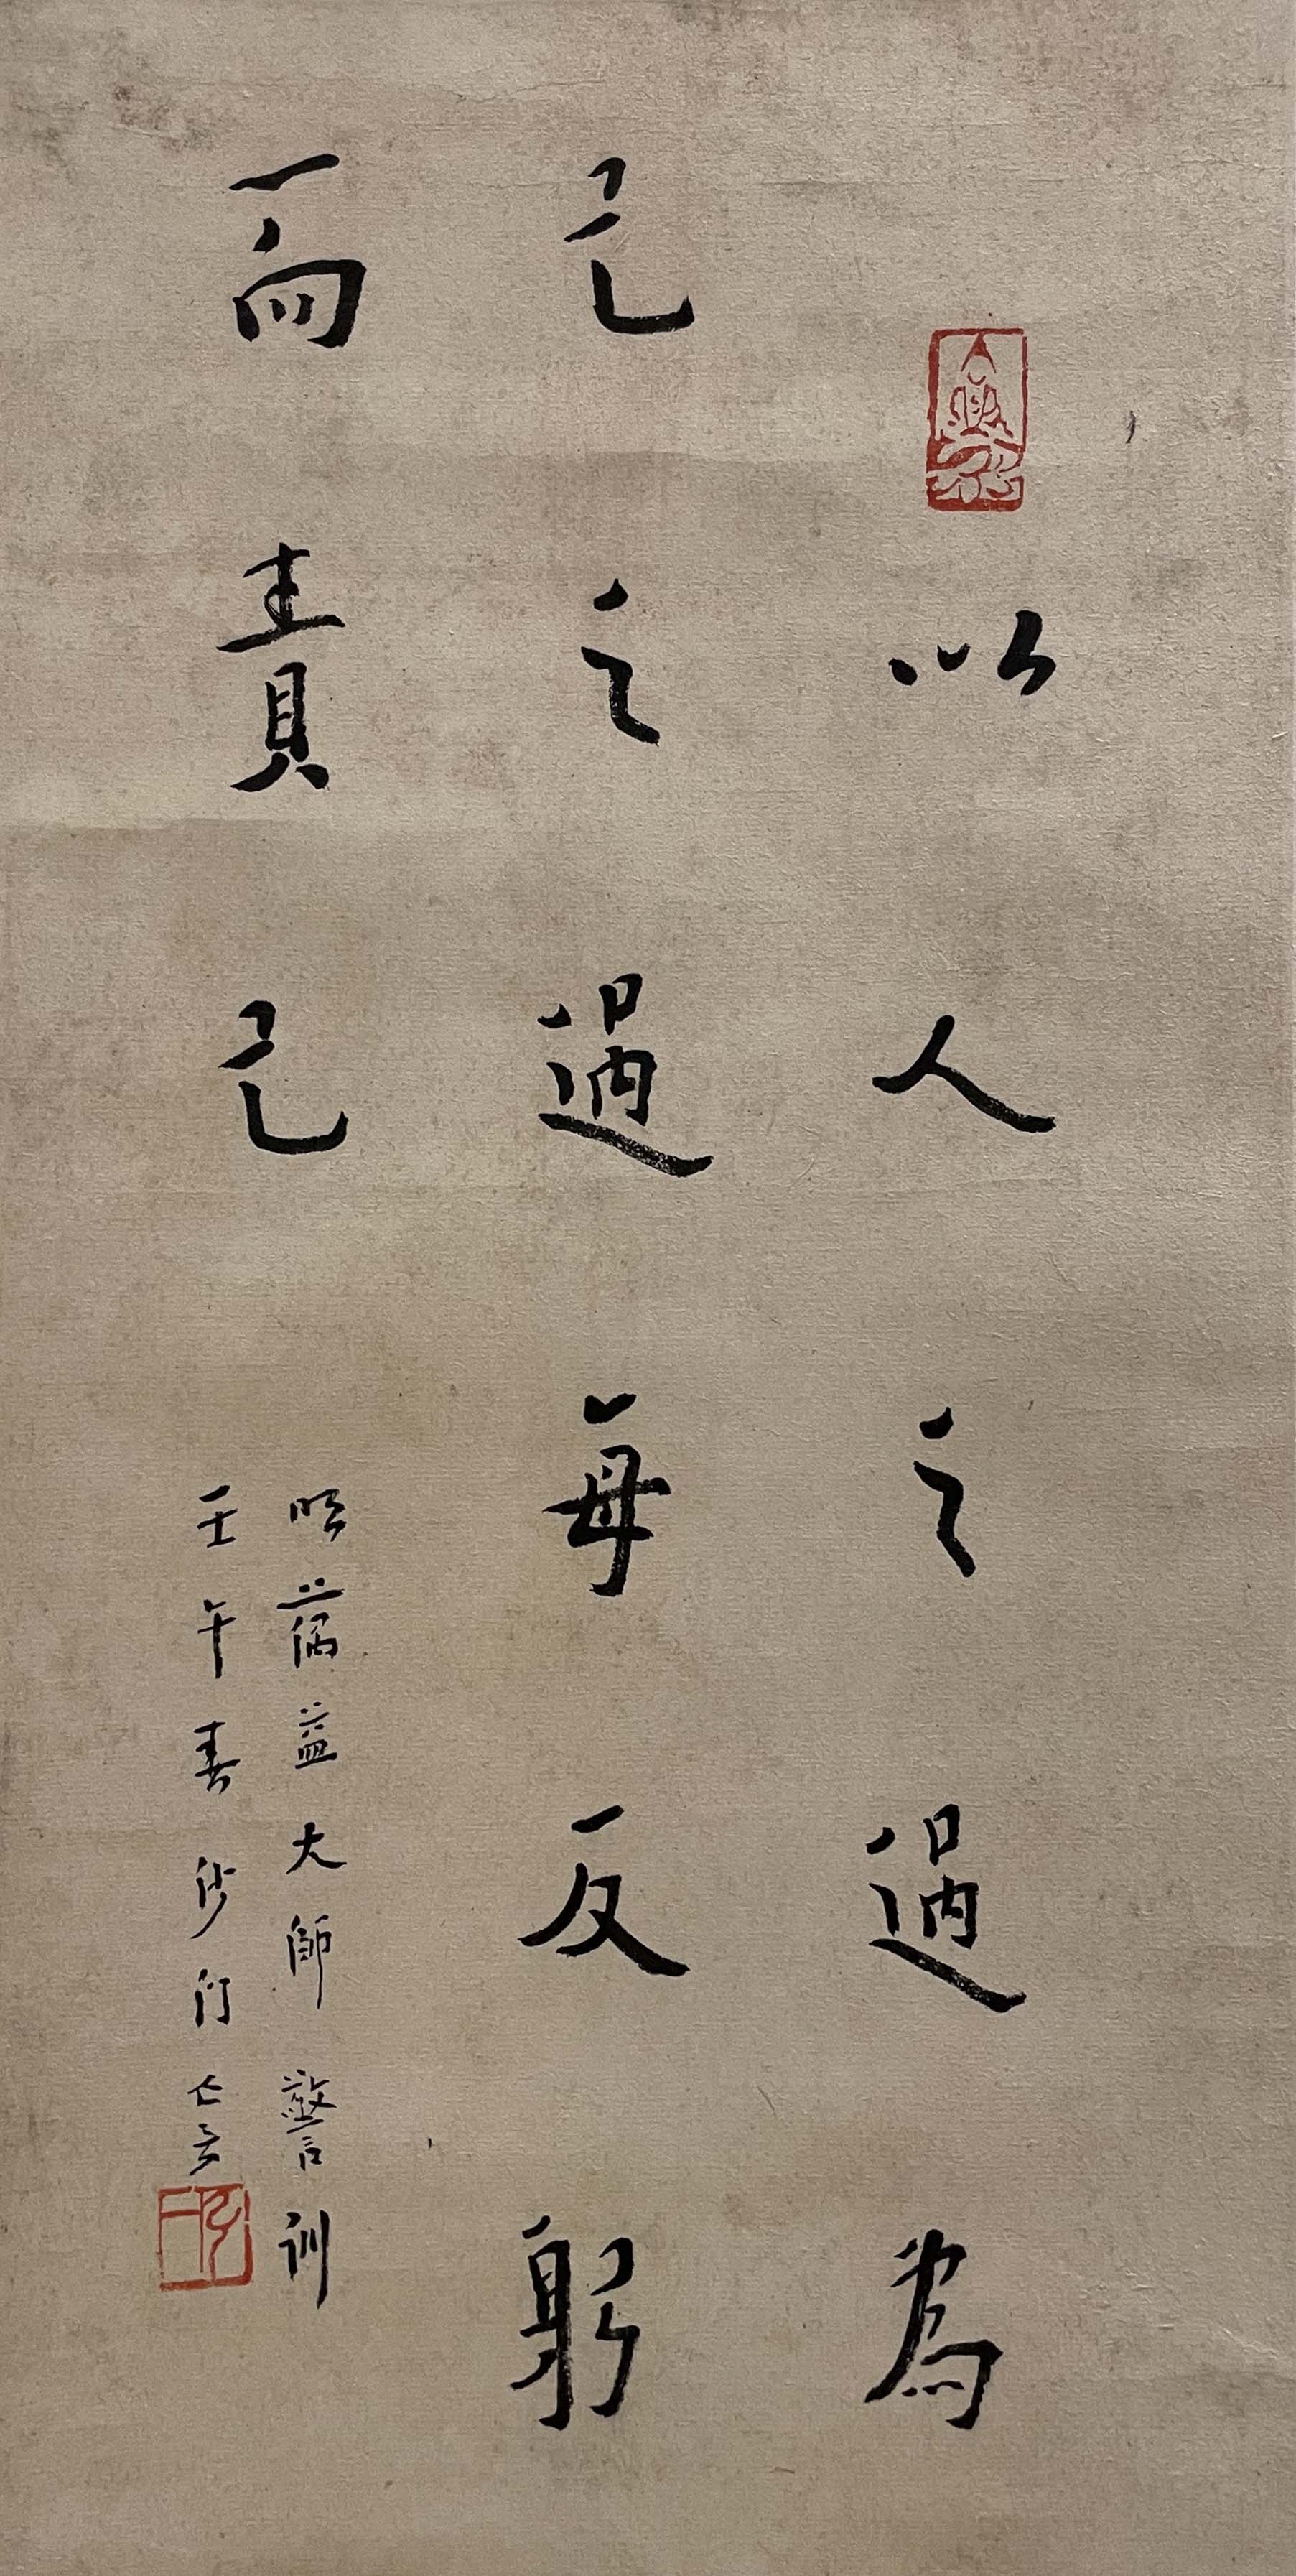 以人之過為
己之過每反躬
而責己
明蕅益大師警訓
壬午春沙門亡言
弘一